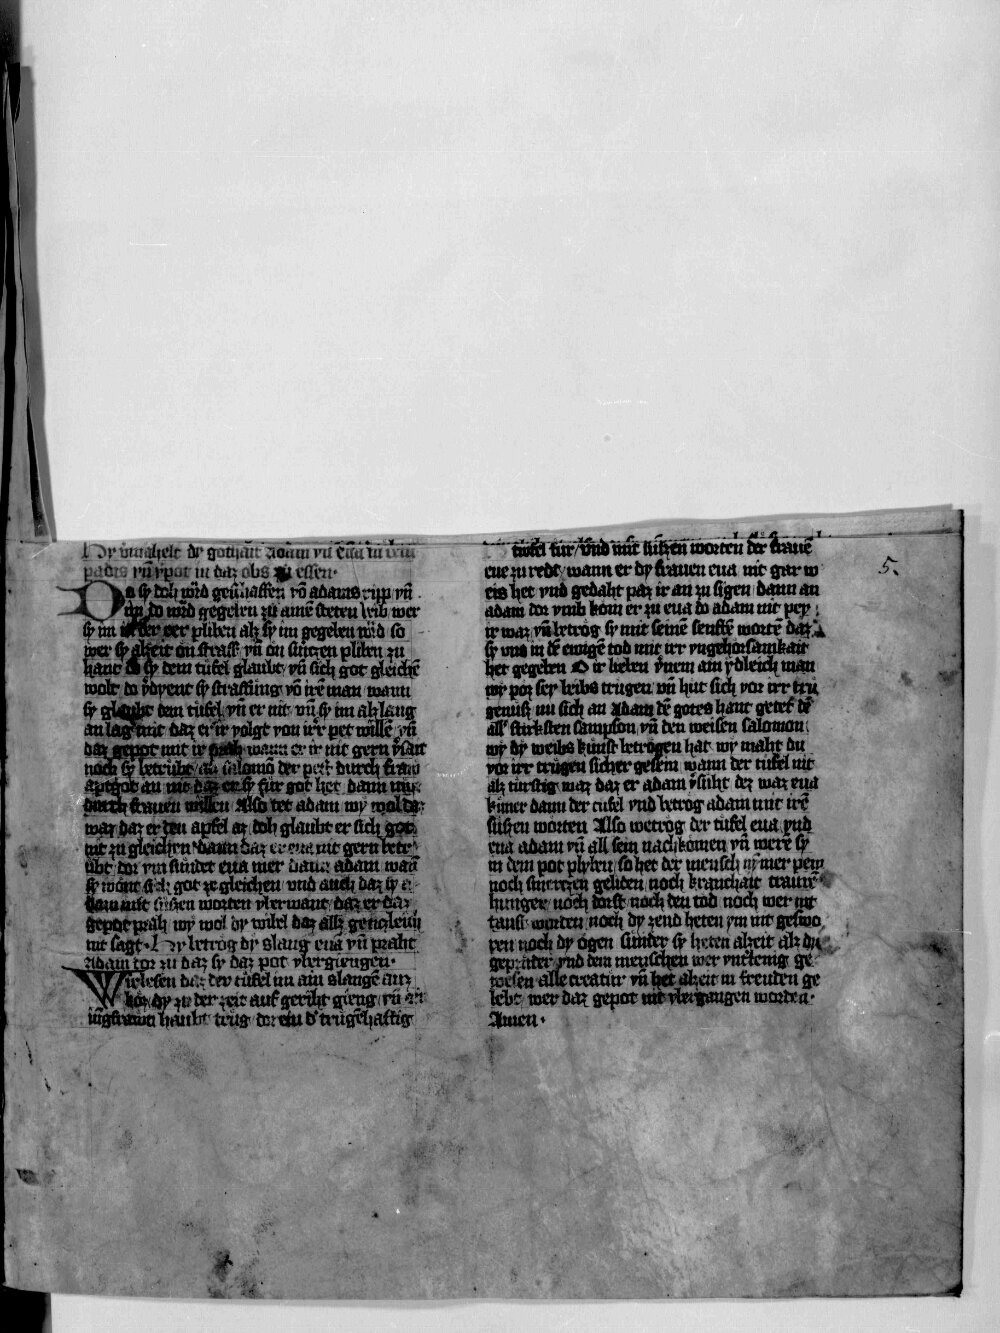 Hy vmahelt dy gothait Adam vn̄ eua in dem
padis vn̄ v̾pot in daz obs zu essen·
Do sy doh w̾d geschaffen vō adams ripp vn̄
im do w̾d gegeben zu ainē steten leib wer
sy im in der eer pliben alz sy im gegeben w̾d so
wer sy alzeit on straff vn̄ on smitzen pliben zu
hant do sy dem tüfel glaubt vn̄ sich got gleichē
wolt do v̾dyent sy straffung vō irē man wann
sy glaubt dem tüfel vn̄ er nit vn̄ sy im alz lang
an lag mit daz er ir volgt von irr pet willē vn̄
daz gepot mit ir prah wann er ir nit gern v̾sait
noch sy betrübt alz salomō der pett durch fraw
aptgot an nit daz er sy für got het dann nur
durch frauen willen Also tet adam wy wol daz
waz daz er den apfel az doh glaubt er sich got
nit zu gleichen dann daz er eua nit gern betr
übt dor vm sündet eua mer dann adam wan̄
sy wont sich got ze gleichen vnd auch daz sy
dorn mit süssen worten vberwant daz er daz
gepot prah wy wol dy wibel daz allz gentzleich
nit sagt· Hy betrog dy slang eua vn̄ praht
Adam dor zu daz sy daz pot vbergiengen·
Wir lesen daz der tüfel im ain slangē auz
kōr dy zu der zeit auf geriht gieng vn̄ ain
iūgfrawen haubt trüg dor ein d' trugēhaftig
tüfel für vnd mit hübzen worten der frauē
eue zu redt wann er dy frauen eua nit gar w
eis het vnd gedaht paz ir an zu sigen dann an
adam dor vmb kom er zu eua do adam nit pey
ir waz vn̄ betrög sy mit seinē senftē wortē daz
sy vns in dē ewigē tod mit irr vngehorsamkait
het gegeben O ir lieben v̾nem ain ydleich man
wy poz sey leibs trügen vn̄ hut sich vor irr trü
genuss nu sich an Adam dē gotes hant getet dē
all' stürksten sampson vn̄ den weisen salomon
wy dy weibs kunst betrogen hat wy maht du
vor irr trügen sicher gesein wann der tüfel nit
alz türstig waz daz er adam v̾suht dez waz eua
küner dann der tüfel vnd betrog adam mit irē
süssen worten Also wetrog der tüfel eua vnd
eua adam vn̄ all sein nachkomen vn̄ werē sy
in dem pot pliben so het der mensch nymer pein
noch smertzen geliden noch kranchait traurē
hunger noch dorst noch den tod noch wer nit
tausi worden noch dy zend heten ym nit geswo
ren noch dy ogen sünder sy heten alzeit alz dy
geprüder vnd dem menschen wer vnt̾tenig ge
wesen alle creatur vn̄ het alzeit in freuden ge
lebt wer daz gepot nit vbergangen worden·
Amen·
5.